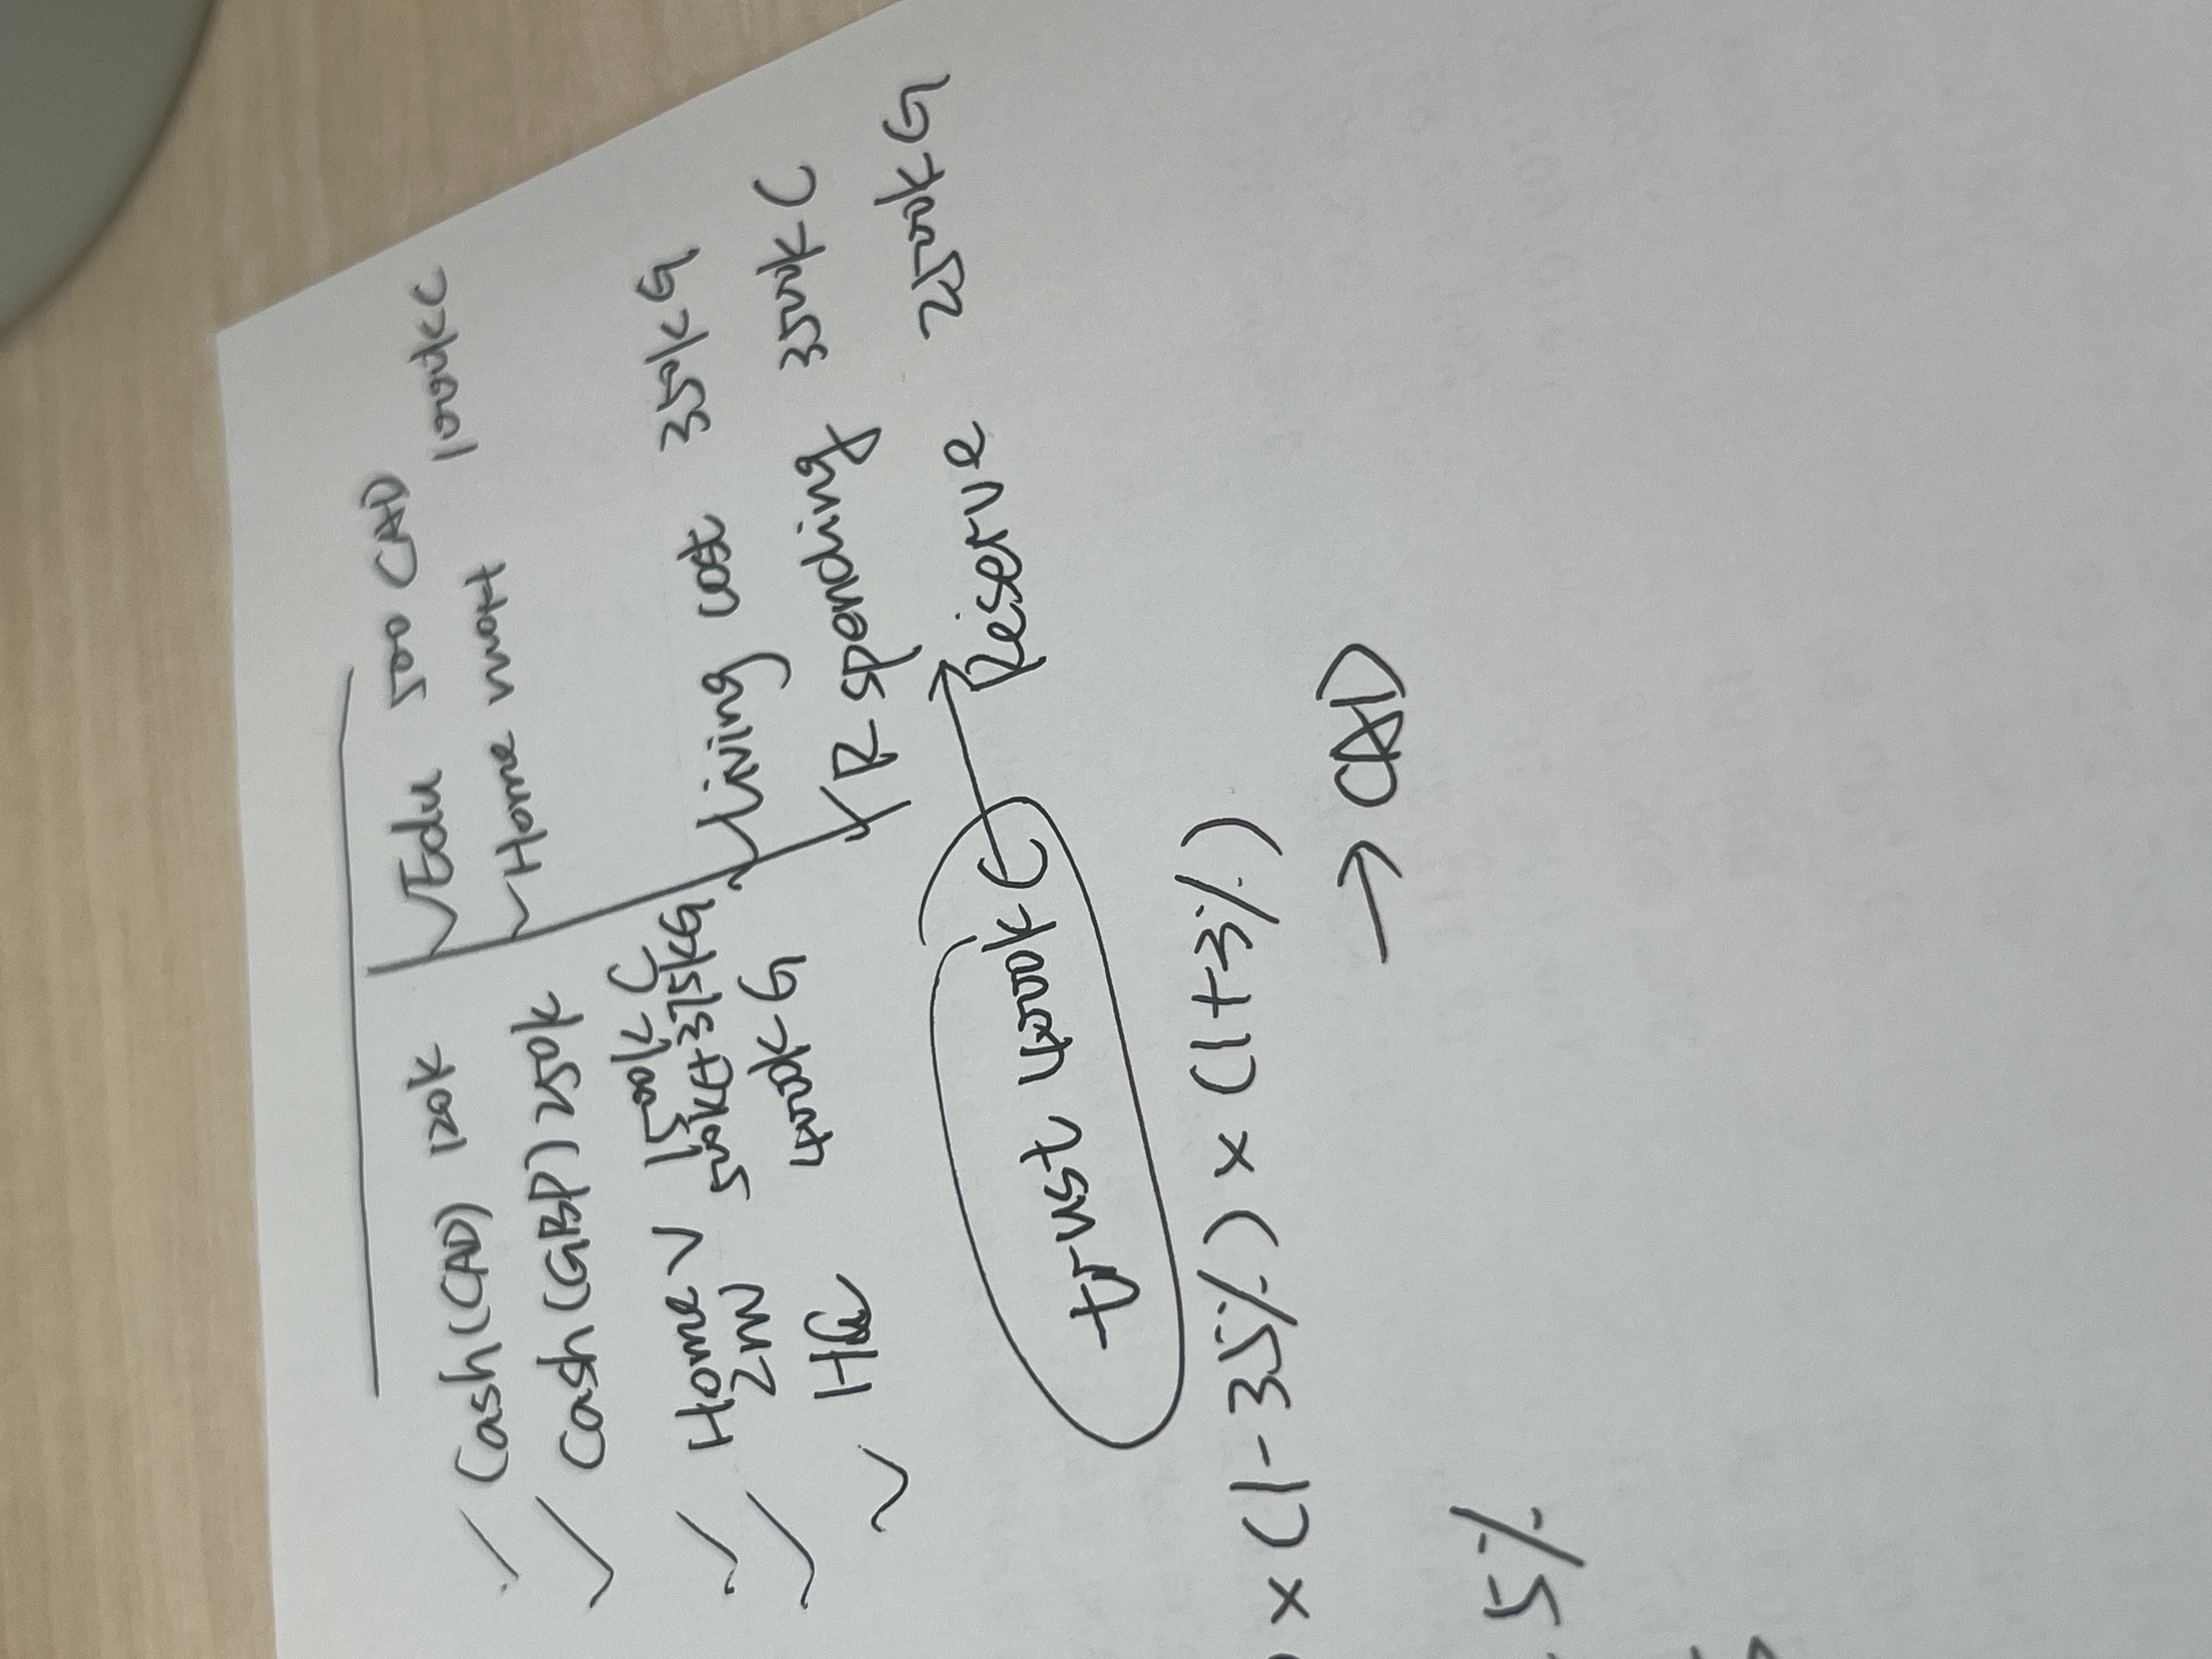 Cash (CAD) 120k
Cash (GBP) 250k
Home V 1500k C
ZNW 500k G + 315k G
HC 400k G
trust 400k C
Edu 500 CAD
Home 1000k C
Living cost 350k G
R spending 350k C
Reserve 250k G
x (1-35%) x (1+3%)
→ CAD
5%